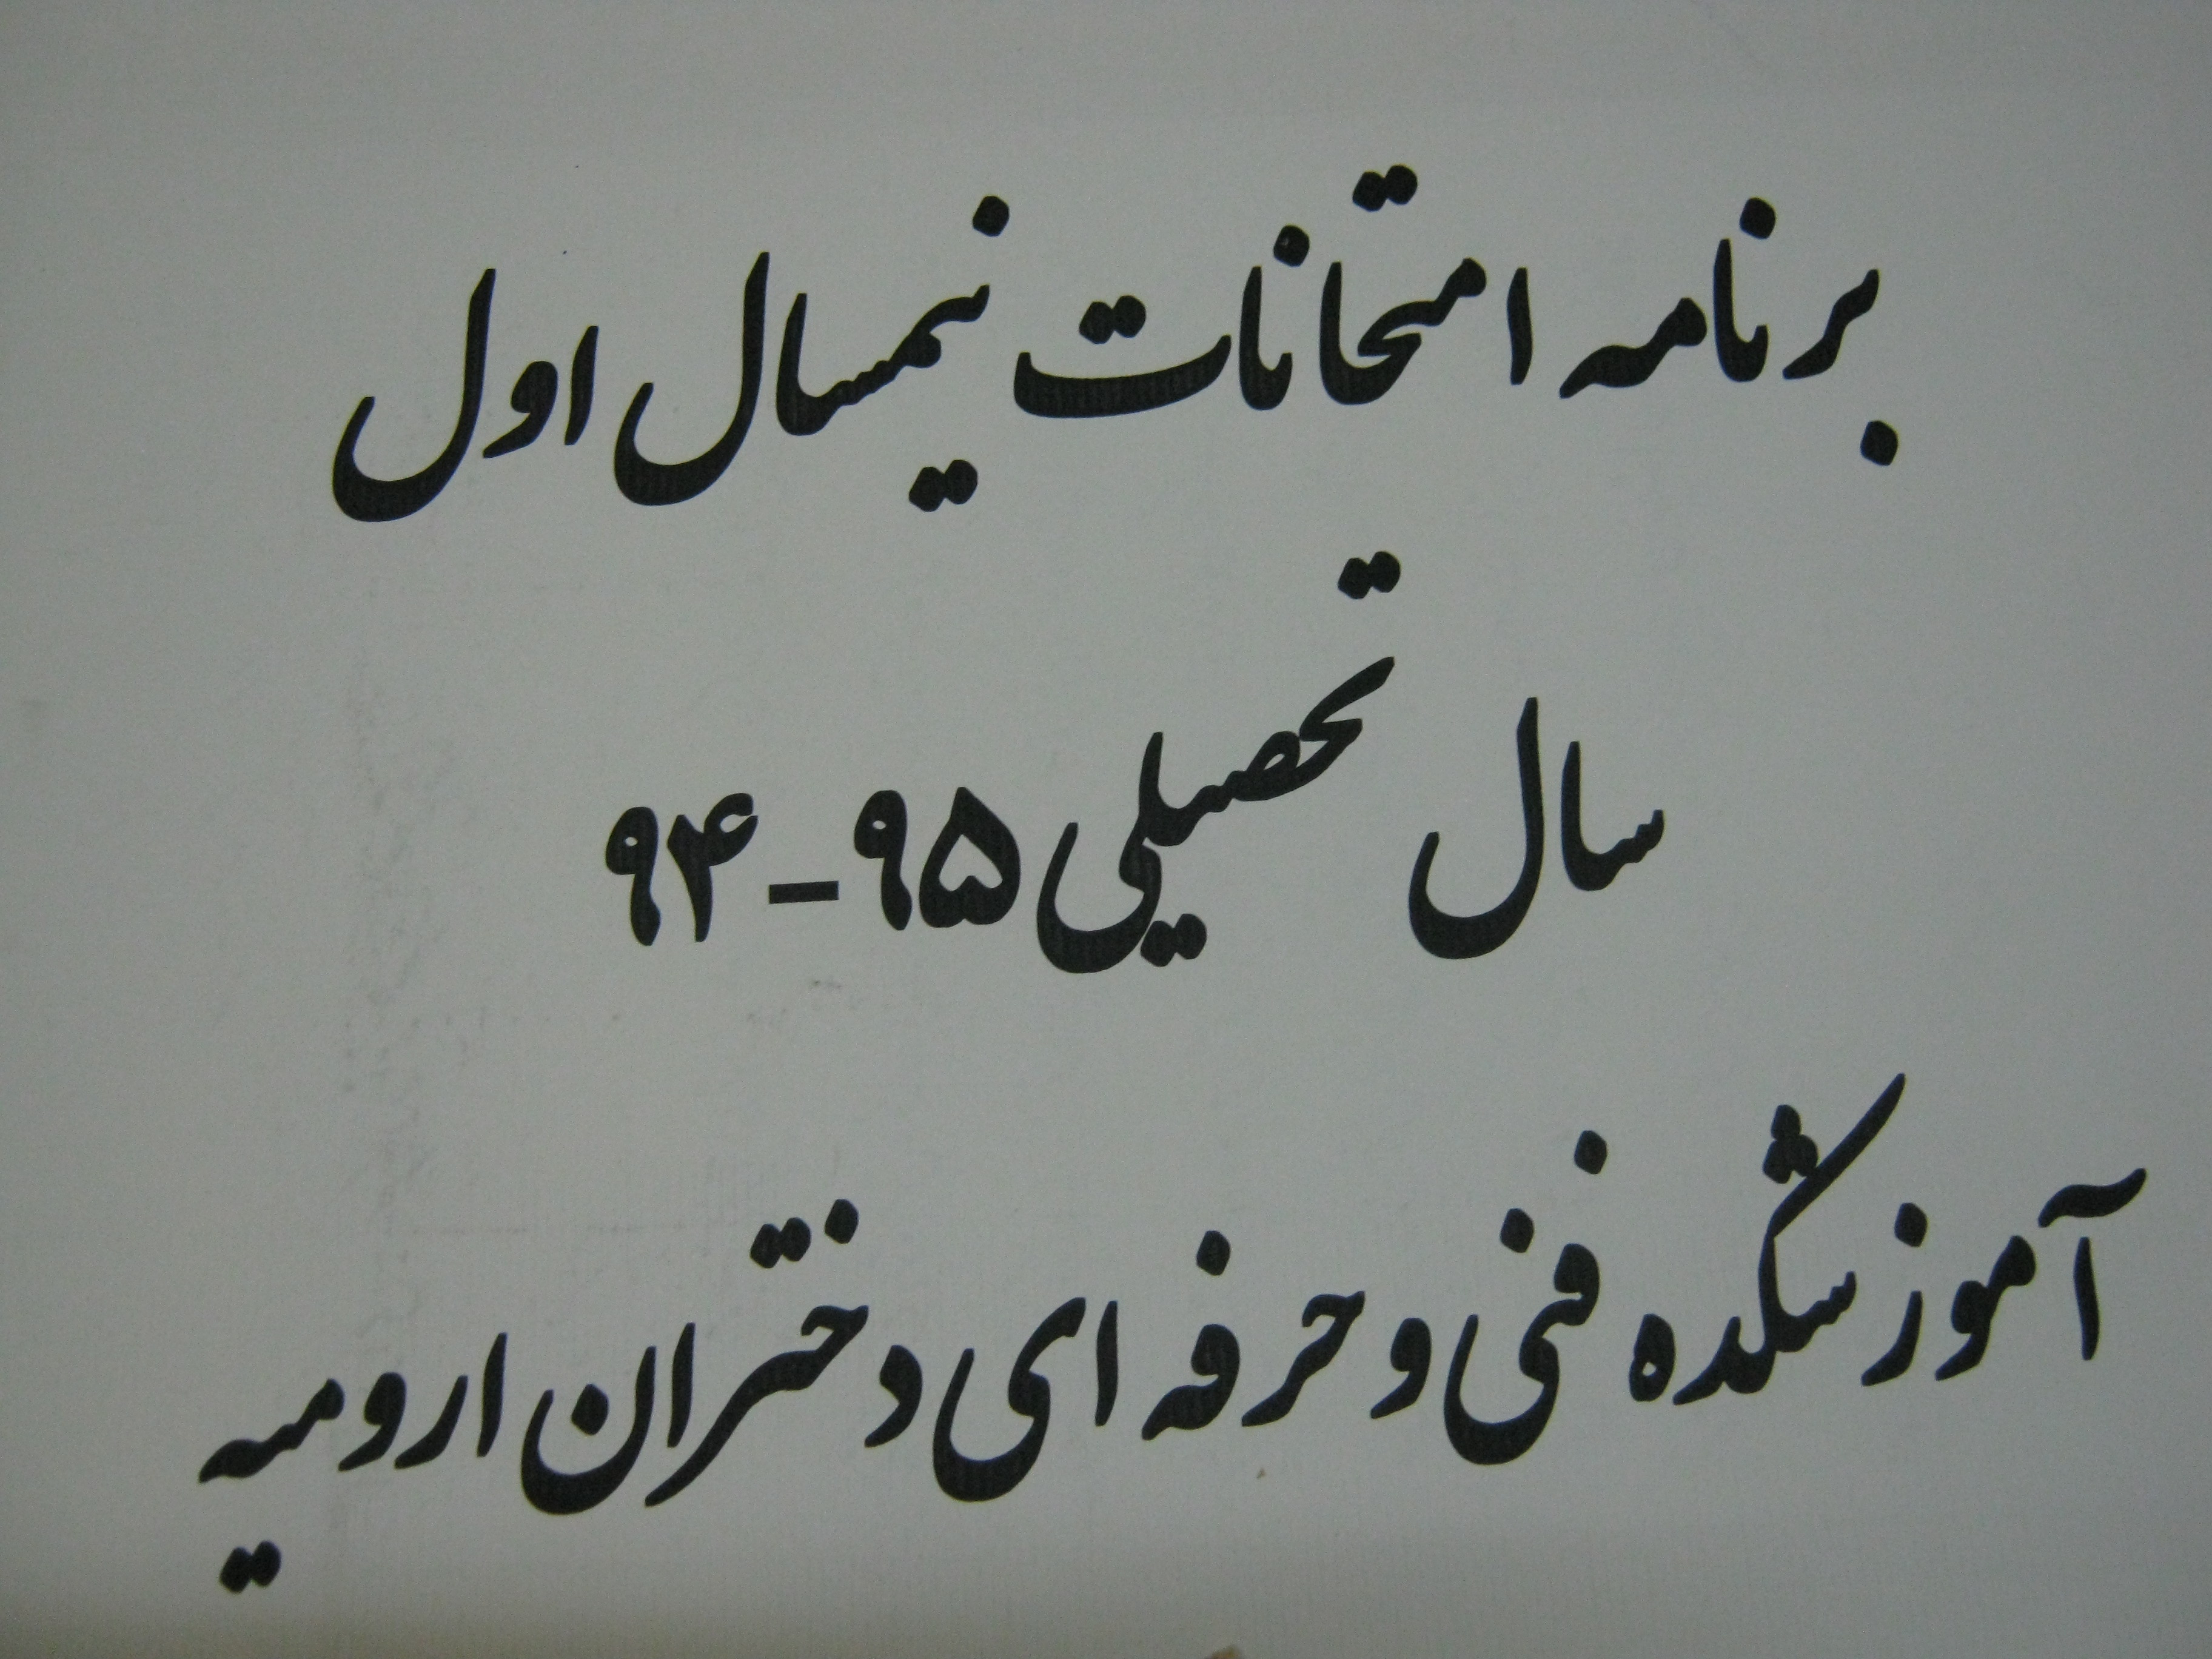 برنامه امتحانات نیمسال اول
سال تحصیلی ۹۵-۹۴
آموزشکده فنی و حرفه ای دختران ارومیه